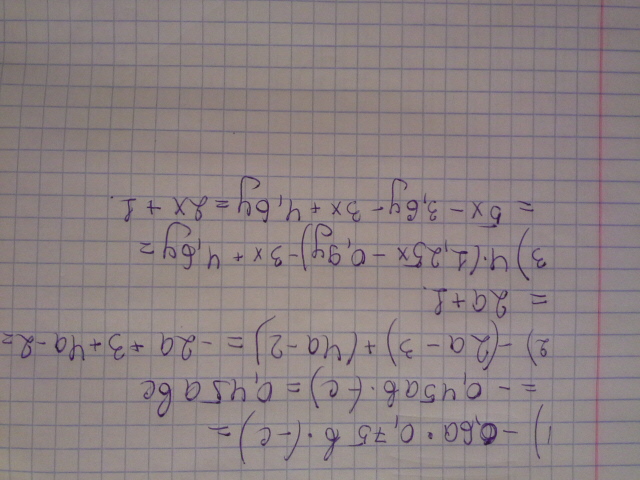 1) -0,6a·0,75b·(-c)=
= -0,45ab·(-c)=0,45abc
2) -(2a-3)+(4a-2)=-2a+3+4a-2=
= 2a+1.
3) 4·(1,25x-0,9y)-3x+4,6y=
= 5x-3,6y-3x+4,6y=2x+1.